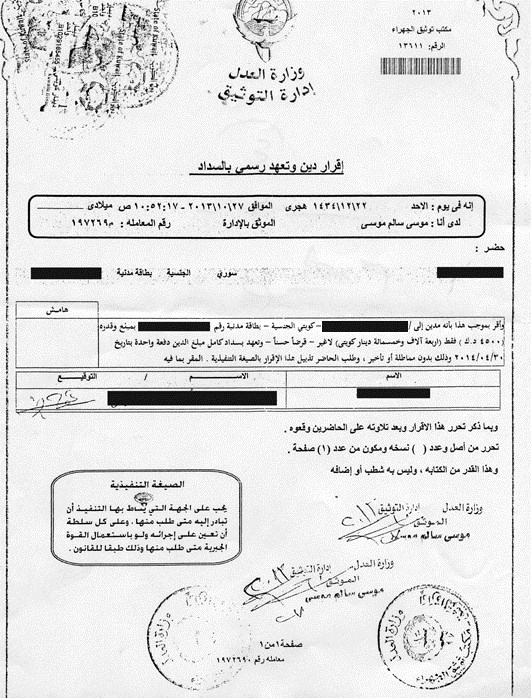 ٢٠١٣
مكتب توثيق الجهراء
الرقم: ١٣٦١١
State of Kuwait
وزارة العدل
إدارة التوثيق
إقرار دين وتعهد رسمي بالسداد
إنه فى يوم : الاحد ١٤٣٤/١٢/٢٢ هجرى الموافق ٢٠١٣/١٠/٢٧ - ١٠:٥٢:١٧ ص ميلادى
لدى أنا : موسى سالم موسى الموثق بالإدارة رقم المعامله : ١٩٧٢٦٩٠
حضر :
سوري الجنسية بطاقة مدنية
هامش
وأقر بموجب هذا بأنه مدين إلى / – كويتي الجنسية – بطاقة مدنية رقم بمبلغ وقدره
(٤٥٠٠ د.ك) فقط (اربعة آلاف وخمسمائة دينار كويتى) لاغير – قرضاً حسناً – وتعهد بسداد كامل مبلغ الدين دفعة واحدة بتاريخ
٢٠١٤/٠٤/٣٠ وذلك بدون مماطلة أو تأخير ، وطلب الحاضر تذييل هذا الإقرار بالصيغة التنفيذية . المقر بما فيه
الاسم الاســـم / التوقيــع
وبما ذكر تحرر هذا الاقرار وبعد تلاوته على الحاضرين وقعوه .
تحرر من أصل وعدد ( ) نسخه ومكون من عدد (١) صفحة .
وهذا القدر من الكتابه ، وليس به شطب أو إضافه
الصيغة التنفيذية
يجب على الجهة التي يناط بها التنفيذ أن
تبادر إليه متى طلب منها، وعلى كل سلطة
أن تعين على إجرائه ولو باستعمال القوة
الجبرية متى طلب منها وذلك طبقا للقانون.
وزارة العدل إدارة التوثيق
الموثق
موسى سالم موسى
وزارة العدل إدارة التوثيق
الموثق
موسى سالم موسى
صفحة ١ من ١
معامله رقم ١٩٧٢٦٩٠
وزارة العدل